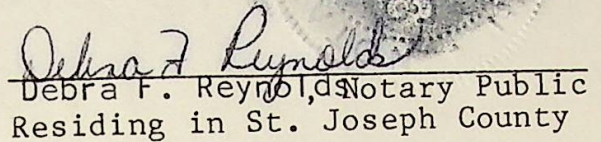 Debra F Reynolds
Debra F. Reynolds, Notary Public
Residing in St. Joseph County